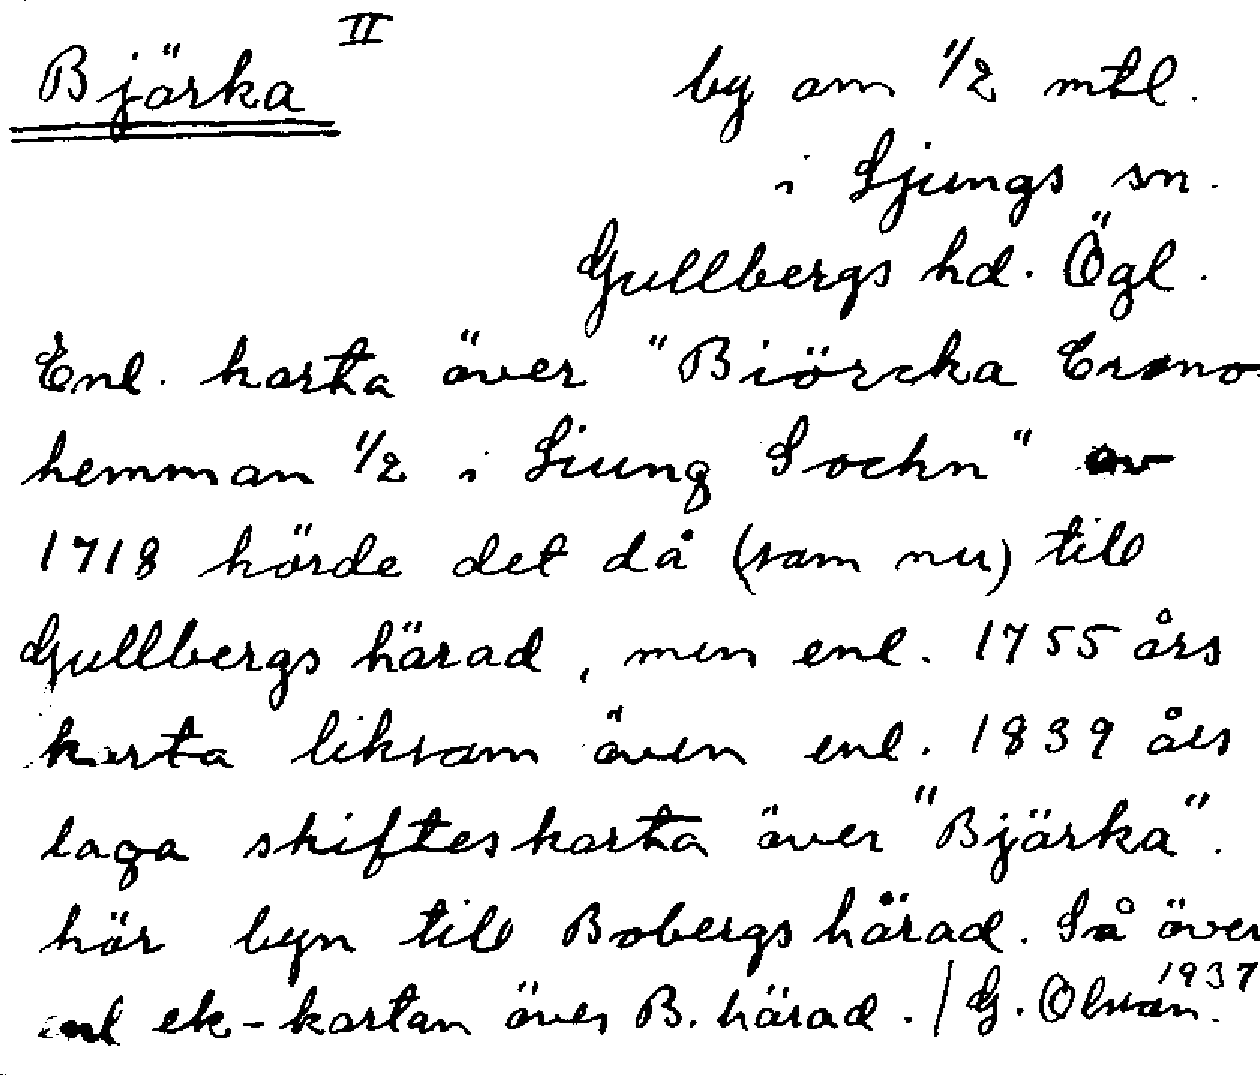 Bjärka II
by om 1/2 mtl.
i Ljungs sn.
Gullbergs hd. Ögl.
Enl. karta över "Biörcka Crono
hemman 1/2 i Liung Sochn" av
1718 hörde det då (som nu) till
Gullbergs härad, men enl. 1755 års
karta liksom även enl. 1839 års
laga skifteskarta över "Bjärka".
hör byn till Bobergs härad. Så även
enl ek-kartan över B. härad. / G. Olson. 1937